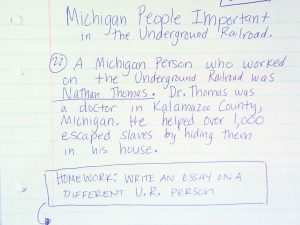 Michigan People Important
in the Underground Railroad.
22 A Michigan Person who worked
on the Underground Railroad was
Nathan Thomas. Dr. Thomas was
a doctor in Kalamazoo County,
Michigan. He helped over 1,000
escaped slaves by hiding them
in his house.
HOMEWORK: WRITE AN ESSAY ON A
DIFFERENT U.R. PERSON